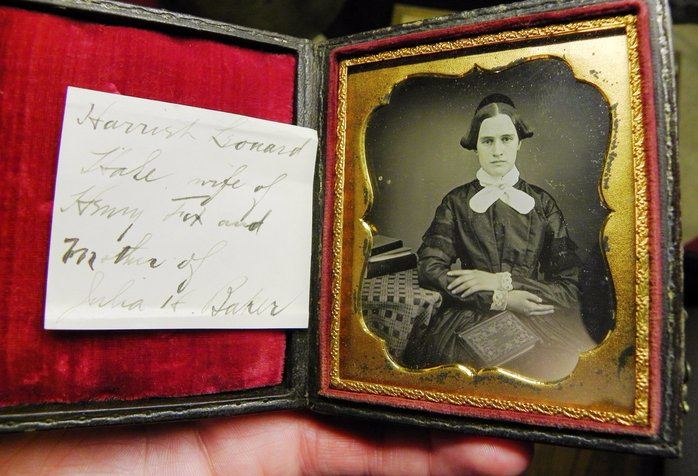 Harriet Gouard
Hale wife of
Henry Fox and
Mother of
Julia H. Baker